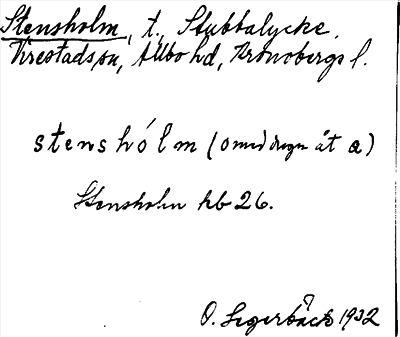 Stensholm, t., Stubbalycke,
Virestads sn, Allbo hd, Kronobergs l.
stenshólm (o med dragn åt a)
Stensholm hb 26.
O. Segerbäck 1932